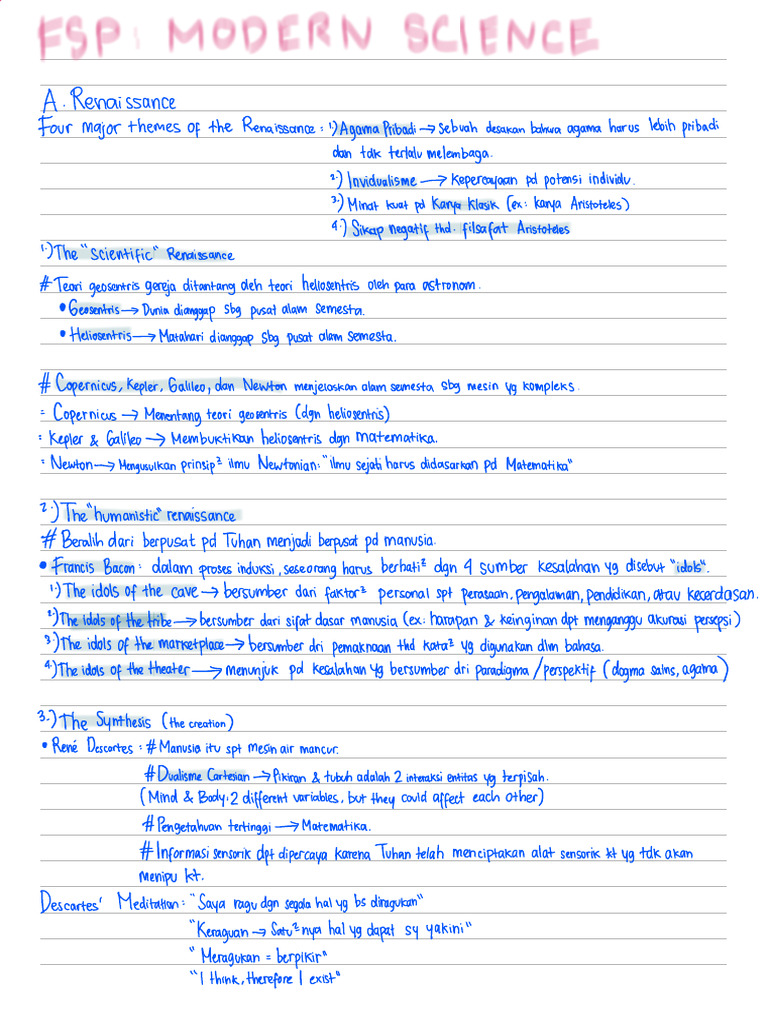 FSP: MODERN SCIENCE
A. Renaissance
Four major themes of the Renaissance: 1.) Agama Pribadi → Sebuah desakan bahwa agama harus lebih pribadi
dan tdk terlalu melembaga.
2.) Invidualisme → Kepercayaan pd potensi individu.
3.) Minat kuat pd Karya Klasik (ex: karya Aristoteles)
4.) Sikap negatif thd. filsafat Aristoteles
1.) The "scientific" Renaissance
# Teori geosentris gereja ditantang oleh teori heliosentris oleh para astronom.
• Geosentris → Dunia dianggap sbg pusat alam semesta.
• Heliosentris → Matahari dianggap sbg pusat alam semesta.
# Copernicus, Kepler, Galileo, dan Newton menjelaskan alam semesta sbg mesin yg kompleks.
= Copernicus → Menentang teori geosentris (dgn heliosentris)
= Kepler & Galileo → Membuktikan heliosentris dgn matematika.
= Newton → Mengusulkan prinsip² ilmu Newtonian: "ilmu sejati harus didasarkan pd Matematika"
2.) The "humanistic" renaissance
# Beralih dari berpusat pd Tuhan menjadi berpusat pd manusia.
• Francis Bacon: dalam proses induksi, seseorang harus berhati² dgn 4 sumber kesalahan yg disebut "idols".
1.) The idols of the cave → bersumber dari faktor² personal spt perasaan, pengalaman, pendidikan, atau kecerdasan.
2.) The idols of the tribe → bersumber dari sifat dasar manusia (ex: harapan & keinginan dpt menganggu akurasi persepsi)
3.) The idols of the marketplace → bersumber dri pemaknaan thd kata² yg digunakan dlm bahasa.
4.) The idols of the theater → menunjuk pd kesalahan yg bersumber dri paradigma / perspektif (dogma sains, agama)
3.) The Synthesis (the creation)
• René Descartes: # Manusia itu spt mesin air mancur.
# Dualisme Cartesian → Pikiran & tubuh adalah 2 interaksi entitas yg terpisah.
(Mind & Body: 2 different variables, but they could affect each other)
# Pengetahuan tertinggi → Matematika.
# Informasi sensorik dpt dipercaya karena Tuhan telah menciptakan alat sensorik kt yg tdk akan
menipu kt.
Descartes' Meditation: "Saya ragu dgn segala hal yg bs diragukan"
"Keraguan → Satu²nya hal yg dapat sy yakini"
"Meragukan = berpikir"
"I think, therefore I exist"